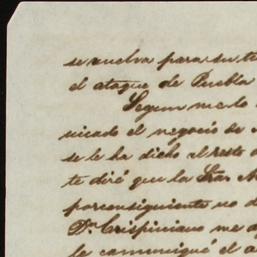 se vuelva para su t
el ataque de Puebla
Segun me lo
nicado el negocio de
se le ha dicho al resto d
te diré que la Sra. M
porconsiguiente no d
Dn Crispiniano me d
le comuniqué el a